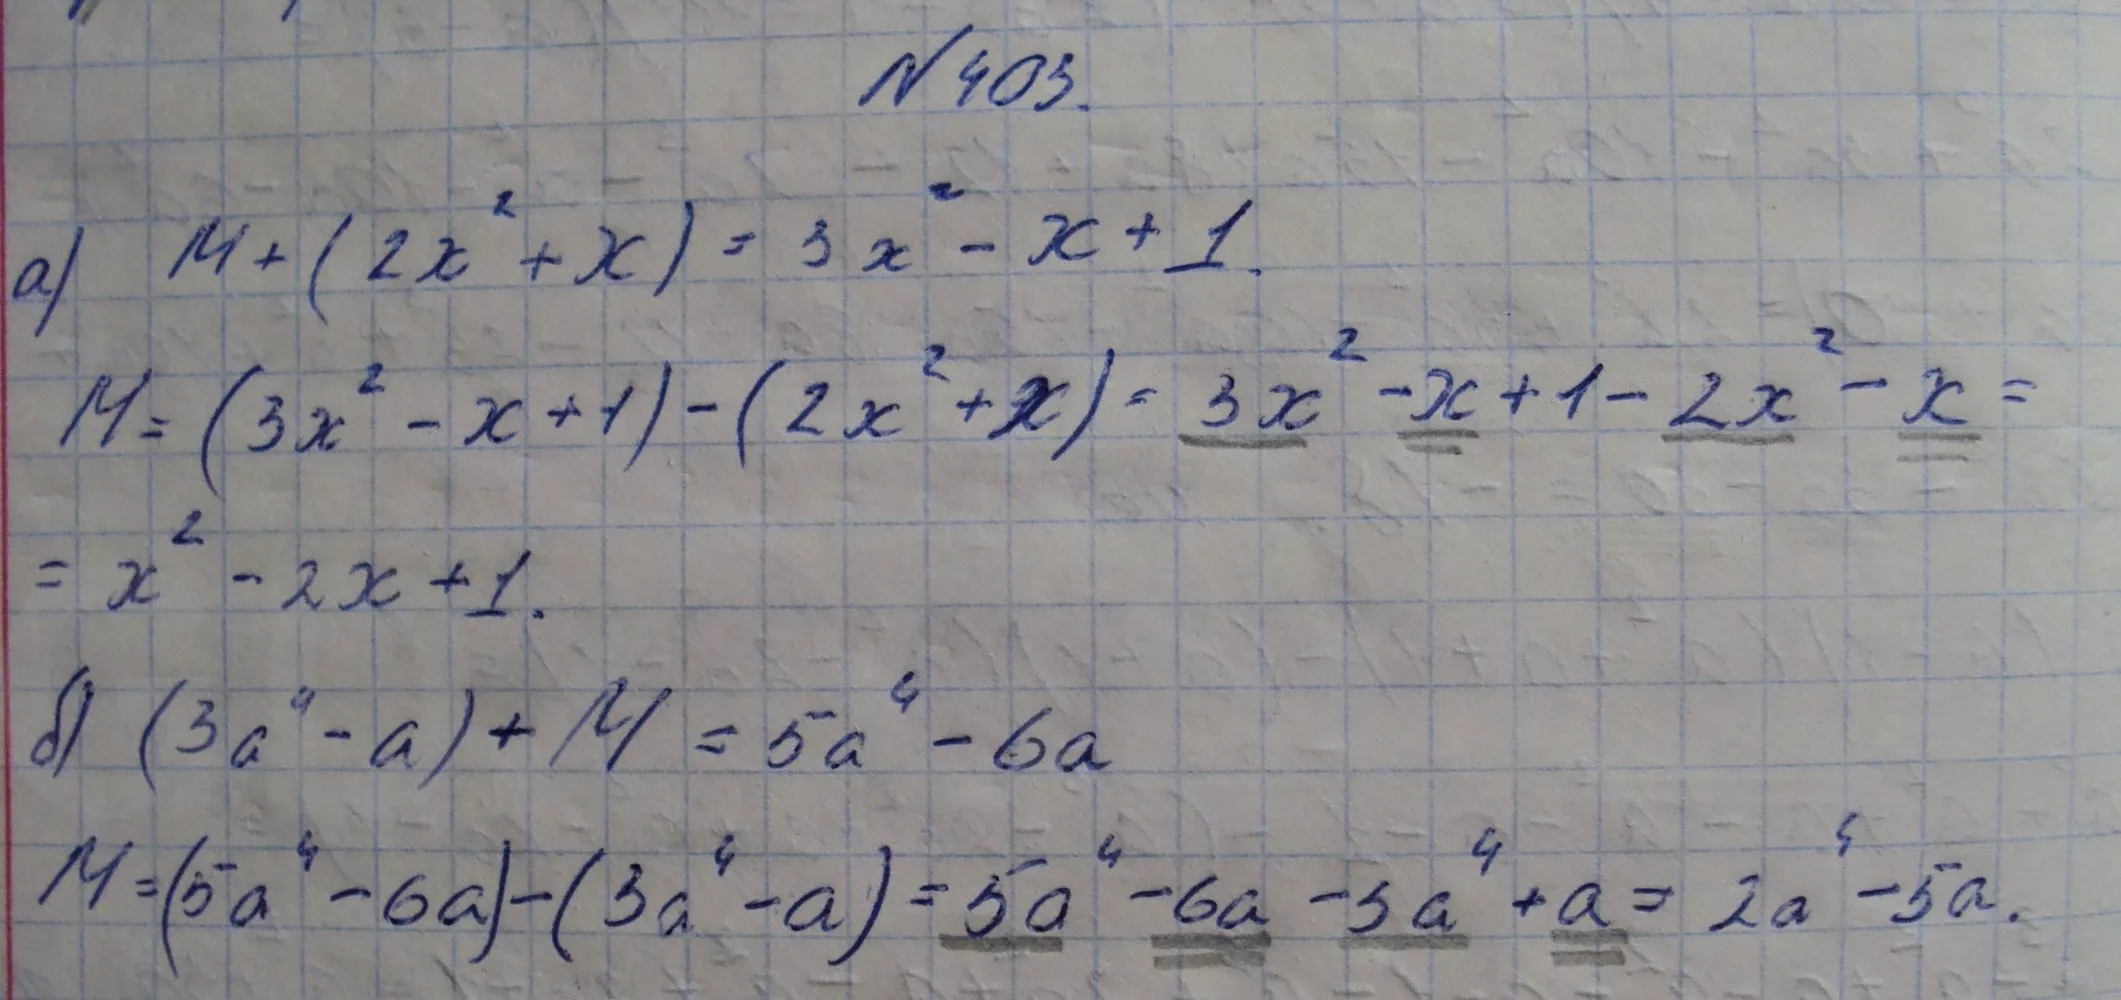 №403.
а) М+(2x²+x)=3x²-x+1.
М=(3x²-x+1)-(2x²+x)=3x²-x+1-2x²-x=
=x²-2x+1.
б) (3a⁴-a)+М=5a⁴-6a
М=(5a⁴-6a)-(3a⁴-a)=5a⁴-6a-3a⁴+a=2a⁴-5a.